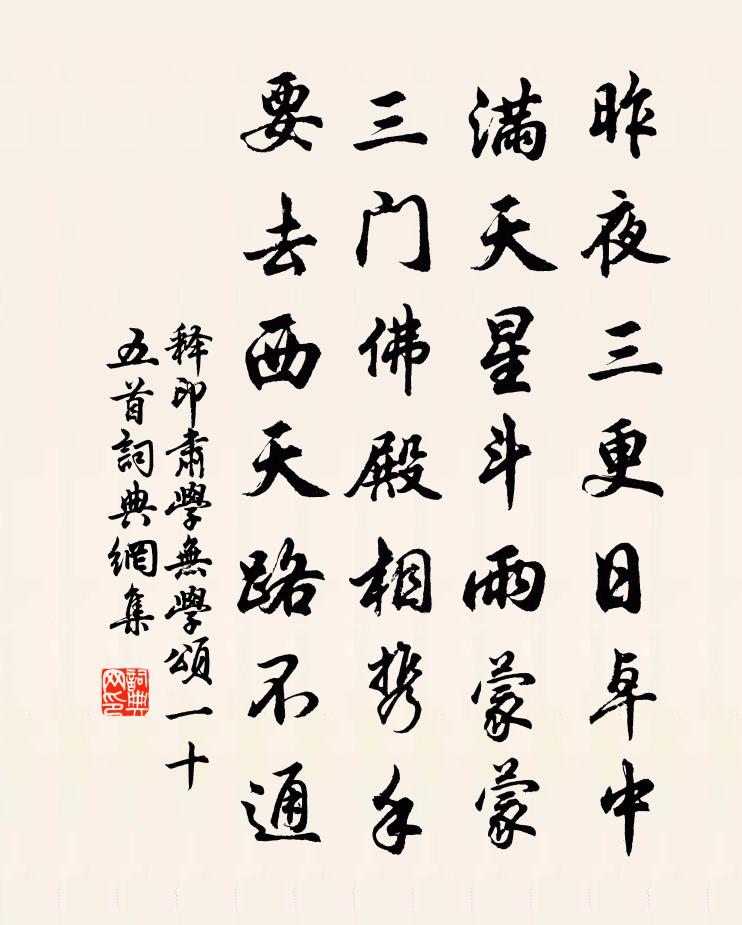 昨夜三更日卓中
满天星斗雨蒙蒙
三门佛殿相携手
要去西天路不通
释印肃學無學頌一十
五首詞典網集
詞典网印